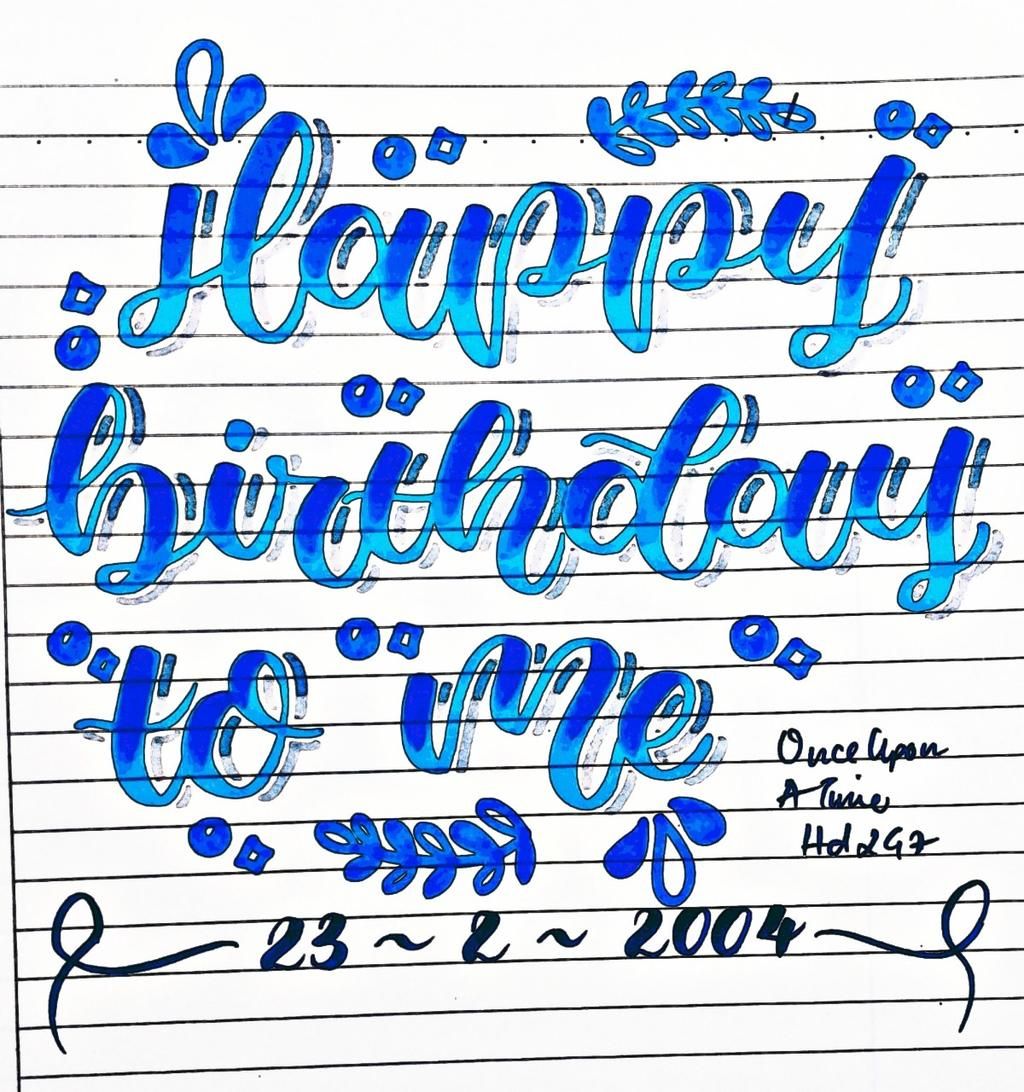 Happy
birthday
to me
Once Upon
A Time
Hd2G7
23 ~ 2 ~ 2004